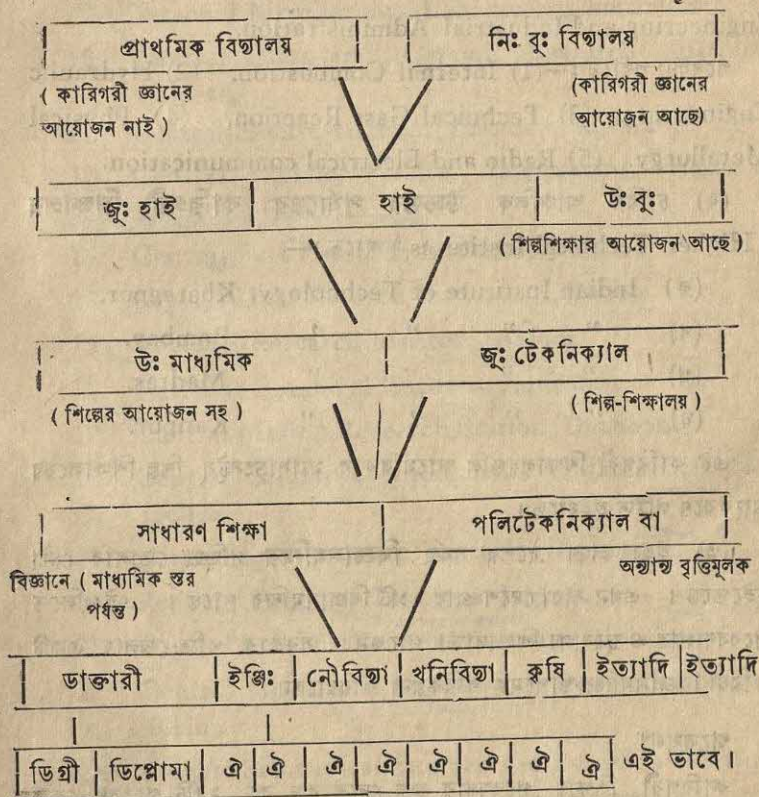 প্রাথমিক বিদ্যালয় নিঃ বুঃ বিদ্যালয়
( কারিগরী জ্ঞানের (কারিগরী জ্ঞানের
আয়োজন নাই ) আয়োজন আছে)
জুঃ হাই হাই উঃ বুঃ
(শিল্পশিক্ষার আয়োজন আছে )
উঃ মাধ্যমিক জুঃ টেকনিক্যাল
( শিল্পের আয়োজন সহ ) ( শিল্প-শিক্ষালয় )
সাধারণ শিক্ষা পলিটেকনিক্যাল বা
বিজ্ঞানে ( মাধ্যমিক স্তর অন্যান্য বৃত্তিমূলক
পর্যন্ত )
ডাক্তারী ইঞ্জিঃ নৌবিদ্যা খনিবিদ্যা কৃষি ইত্যাদি ইত্যাদি
ডিগ্রী ডিপ্লোমা ঐ ঐ ঐ ঐ ঐ ঐ ঐ ঐ এই ভাবে।